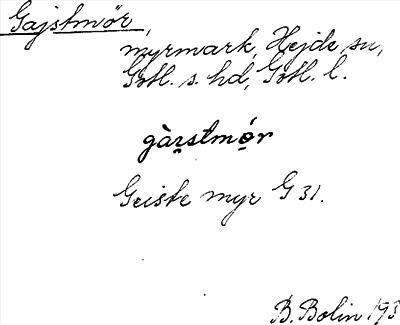 Gajstmör,
myrmark, Hejde sn,
Gotl. s. hd, Gotl. l.
gàɪstmǫ́r
Geiste myr G 31.
B. Bolin 193